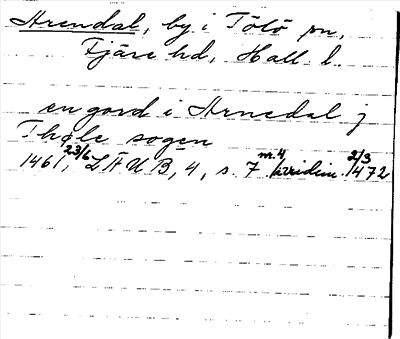 Arendal, by i Tölö sn,
Fjäre hd, Hall. l.
en gard i Arnedal j
Thöle sogen
1461, 23/6 LÄUB, 4, s. 7 nr. 4, 2/3 1472